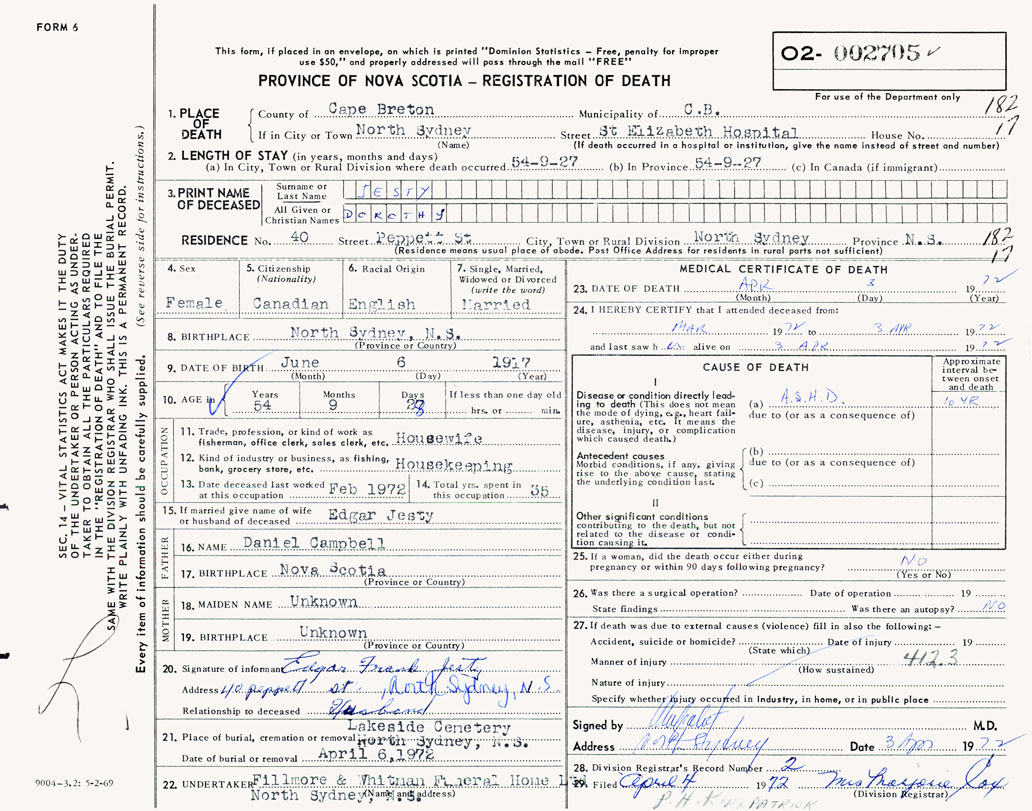 FORM 6
This form, if placed in an envelope, on which is printed "Dominion Statistics – Free, penalty for improper
use $50," and properly addressed will pass through the mail "FREE"
PROVINCE OF NOVA SCOTIA – REGISTRATION OF DEATH
02- 002705
For use of the Department only
182
17
1. PLACE OF DEATH
County of Cape Breton Municipality of C.B.
If in City or Town North Sydney Street St Elizabeth Hospital House No.
(Name) (If death occurred in a hospital or institution, give the name instead of street and number)
2. LENGTH OF STAY (in years, months and days)
(a) In City, Town or Rural Division where death occurred 54-9-27 (b) In Province 54-9-27 (c) In Canada (if immigrant)
3. PRINT NAME OF DECEASED
Surname or Last Name JESTY
All Given or Christian Names DOROTHY
RESIDENCE No. 40 Street Peppett St City, Town or Rural Division North Sydney Province N.S.
(Residence means usual place of abode. Post Office Address for residents in rural parts not sufficient)
182
17
4. Sex
Female
5. Citizenship
(Nationality)
Canadian
6. Racial Origin
English
7. Single, Married,
Widowed or Divorced
(write the word)
Married
8. BIRTHPLACE North Sydney, N.S.
(Province or Country)
9. DATE OF BIRTH June 6 1917
(Month) (Day) (Year)
10. AGE in
Years Months Days If less than one day old
54 9 hrs. or min.
OCCUPATION
11. Trade, profession, or kind of work as
fisherman, office clerk, sales clerk, etc. Housewife
12. Kind of industry or business, as fishing,
bank, grocery store, etc. Housekeeping
13. Date deceased last worked
at this occupation Feb 1972
14. Total yrs. spent in
this occupation 35
15. If married give name of wife
or husband of deceased Edgar Jesty
FATHER
16. NAME Daniel Campbell
17. BIRTHPLACE Nova Scotia
(Province or Country)
MOTHER
18. MAIDEN NAME Unknown
19. BIRTHPLACE Unknown
(Province or Country)
20. Signature of informant Edgar Frank Jesty
Address 40 Peppett st., North Sydney, N.S.
Relationship to deceased Husband
21. Place of burial, cremation or removal Lakeside Cemetery
North Sydney, N.S.
Date of burial or removal April 6,1972
22. UNDERTAKER Fillmore & Whitman Funeral Home Ltd
(Name and address)
North Sydney, N.S.
MEDICAL CERTIFICATE OF DEATH
23. DATE OF DEATH APR 3 1972
(Month) (Day) (Year)
24. I HEREBY CERTIFY that I attended deceased from:
MAR 1972 to 3 APR 1972
and last saw h er alive on 3 APR 1972
CAUSE OF DEATH
Approximate
interval be-
tween onset
and death
I
Disease or condition directly lead-
ing to death (This does not mean
the mode of dying, e.g., heart fail-
ure, asthenia, etc. It means the
disease, injury, or complication
which caused death.)
(a) A.S.H.D. 10 YR
due to (or as a consequence of)
Antecedent causes
Morbid conditions, if any, giving
rise to the above cause, stating
the underlying condition last.
(b)
due to (or as a consequence of)
(c)
II
Other significant conditions
contributing to the death, but not
related to the disease or condi-
tion causing it.
25. If a woman, did the death occur either during
pregnancy or within 90 days following pregnancy? NO
(Yes or No)
26. Was there a surgical operation? Date of operation 19
State findings Was there an autopsy? NO
27. If death was due to external causes (violence) fill in also the following: –
Accident, suicide or homicide? Date of injury 19
(State which)
Manner of injury 412.3
(How sustained)
Nature of injury
Specify whether injury occurred in industry, in home, or in public place
Signed by M.D.
Address North Sydney Date 3 Apr 1972
28. Division Registrar's Record Number 2
29. Filed April 4 1972 Mrs Marjorie Cox
(Division Registrar)
P.H. KIRKPATRICK
SEC. 14 – VITAL STATISTICS ACT MAKES IT THE DUTY
OF THE UNDERTAKER OR PERSON ACTING AS UNDER-
TAKER TO OBTAIN ALL THE PARTICULARS REQUIRED
IN THE "REGISTRATION OF DEATH" AND TO FILE THE
SAME WITH THE DIVISION REGISTRAR WHO SHALL ISSUE THE BURIAL PERMIT.
WRITE PLAINLY WITH UNFADING INK. THIS IS A PERMANENT RECORD.
Every item of information should be carefully supplied. (See reverse side for instructions.)
9004-3.2: 5-2-69